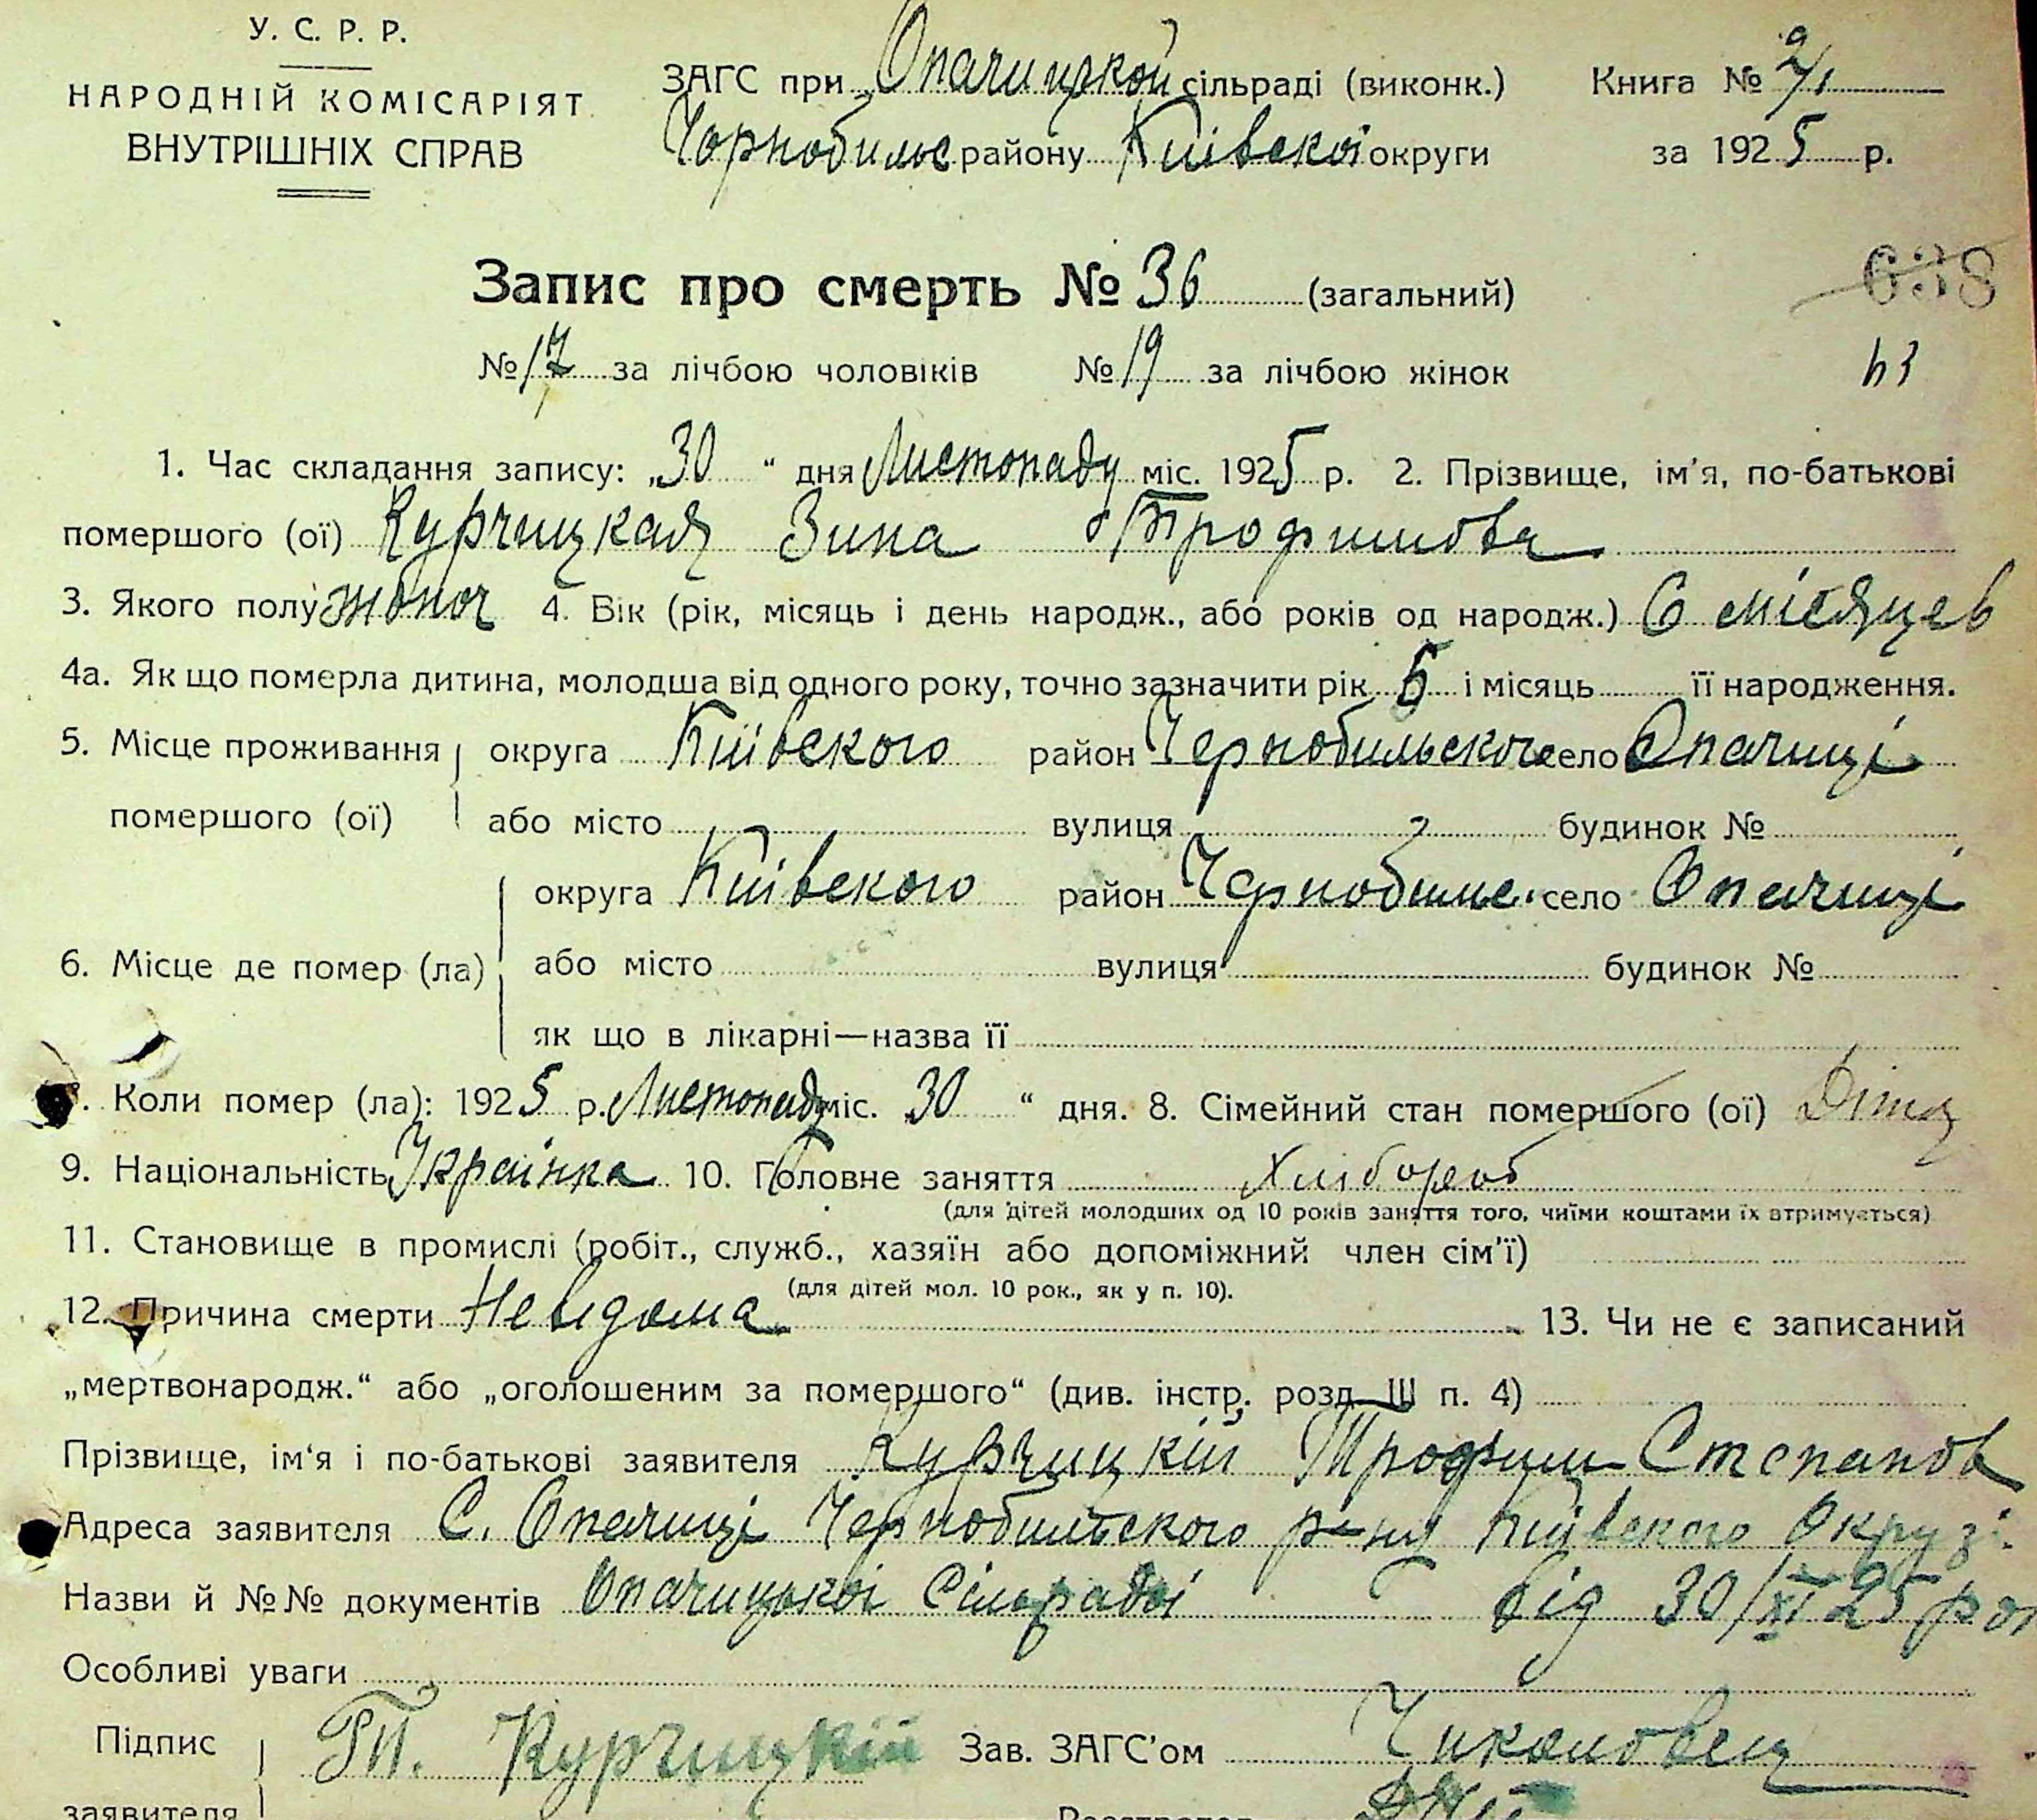 У. С. Р. Р.
НАРОДНІЙ КОМІСАРІЯТ
ВНУТРІШНІХ СПРАВ
ЗАГС при Опачицкой сільраді (виконк.)
Чорнобильс району Київскої округи
Книга № 2/1
за 1925 р.
Запис про смерть № 36 (загальний)
638
№ 17 за лічбою чоловіків № 19 за лічбою жінок
1. Час складання запису: „30“ дня Листопаду міс. 1925 р. 2. Прізвище, ім'я, по-батькові
помершого (ої) Курчицкая Зина Трофимова
3. Якого полу жоноч 4. Вік (рік, місяць і день народж., або років од народж.) 6 місяцев
4а. Як що померла дитина, молодша від одного року, точно зазначити рік 5 і місяць її народження.
5. Місце проживання округа Київского район Чернобильского село Опачиці
помершого (ої) або місто вулиця будинок №
округа Київского район Чернобильс. село Опачиці
6. Місце де помер (ла) або місто вулиця будинок №
як що в лікарні—назва її
7. Коли помер (ла): 1925 р. Листопаду міс. 30 “ дня. 8. Сімейний стан помершого (ої)
9. Національність Українка 10. Головне заняття Хлібороб
(для дітей молодших од 10 років заняття того, чиїми коштами їх втримується)
11. Становище в промислі (робіт., служб., хазяїн або допоміжний член сім'ї)
(для дітей мол. 10 рок., як у п. 10).
12. Причина смерти Невідома 13. Чи не є записаний
„мертвонародж.“ або „оголошеним за помершого“ (див. інстр. розд. III п. 4)
Прізвище, ім'я і по-батькові заявителя Курчицкій Трофим Степанов
Адреса заявителя С. Опачиці Чернобильского р-ну Київского Окрузі
Назви й №№ документів Опачицької Сільради від 30/XI 25 рок
Особливі уваги
Підпис Т. Курчицкій Зав. ЗАГС'ом
заявителя